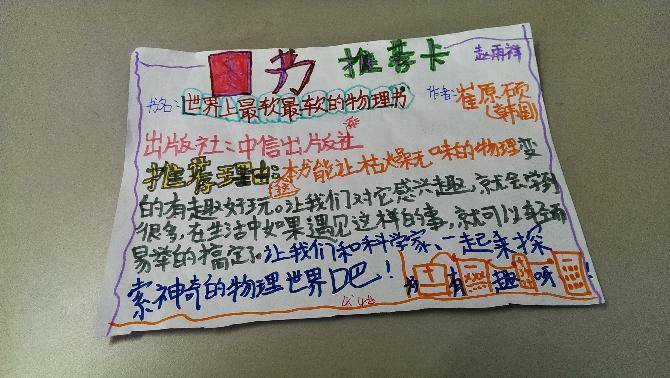 图书推荐卡 赵雨祥
书名:世界上最软最软的物理书 作者:崔原硕
(韩国)
出版社:中信出版社
推荐理由:本书能让枯燥无味的物理变
的有趣好玩。让我们对它感兴趣,就会学到
很多,在生活中如果遇见这样的事,就可以轻而
易举的搞定了。让我们和科学家一起来探
索神奇的物理世界吧!
有趣呀!